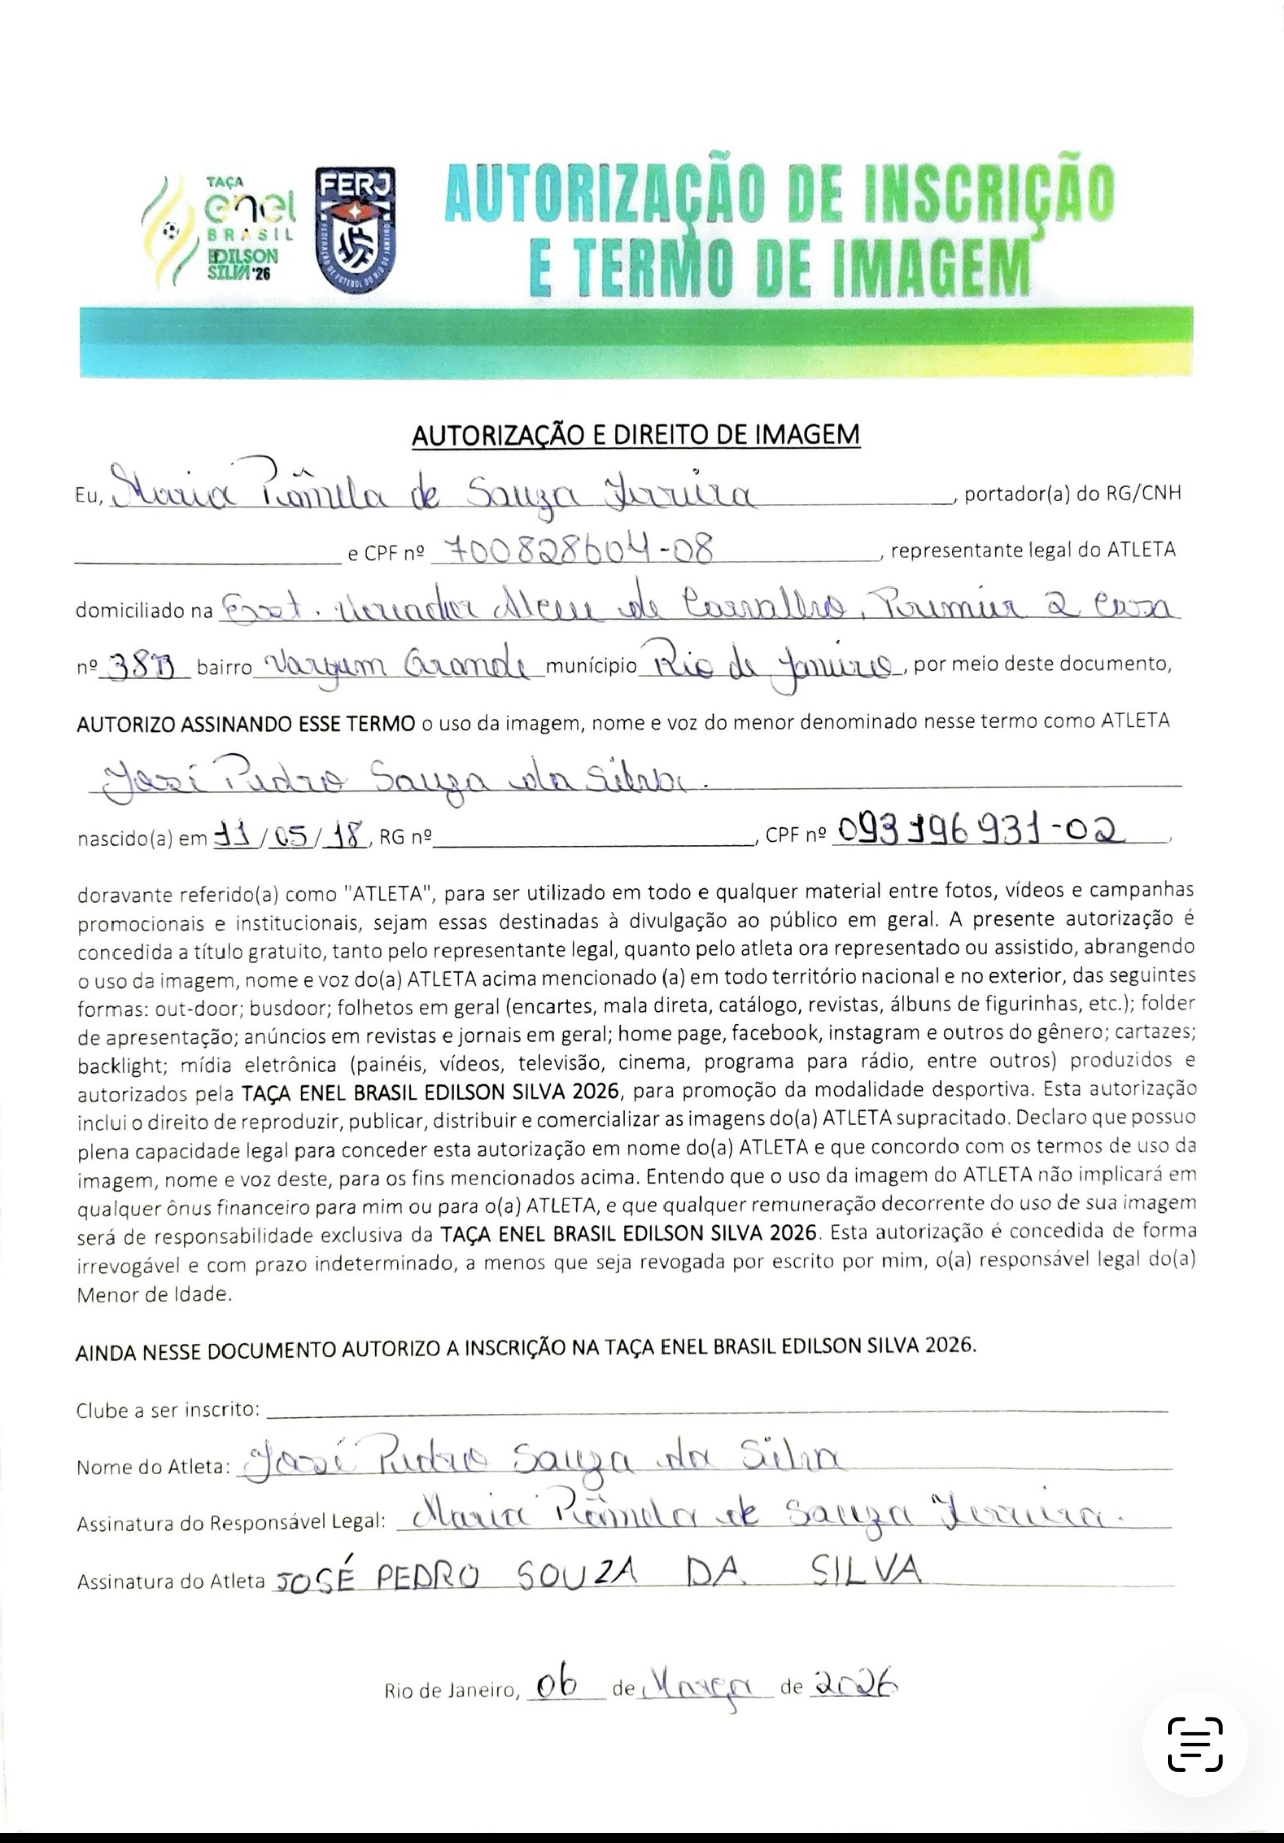 TAÇA
enel
BRASIL
EDILSON
SILVA '26
FERJ
FEDERAÇÃO DE FUTEBOL DO RIO DE JANEIRO
AUTORIZAÇÃO DE INSCRIÇÃO
E TERMO DE IMAGEM
AUTORIZAÇÃO E DIREITO DE IMAGEM
Eu, Maria Pâmela de Souza Ferreira, portador(a) do RG/CNH
e CPF nº 700828604-08, representante legal do ATLETA
domiciliado na Est. Vereador Alceu de Carvalho, Premier 2 Casa
nº 38B bairro Vargem Grande munícipio Rio de Janeiro, por meio deste documento,
AUTORIZO ASSINANDO ESSE TERMO o uso da imagem, nome e voz do menor denominado nesse termo como ATLETA
José Pedro Souza da Silva.
nascido(a) em 11/05/18, RG nº, CPF nº 093196931-02,
doravante referido(a) como "ATLETA", para ser utilizado em todo e qualquer material entre fotos, vídeos e campanhas
promocionais e institucionais, sejam essas destinadas à divulgação ao público em geral. A presente autorização é
concedida a título gratuito, tanto pelo representante legal, quanto pelo atleta ora representado ou assistido, abrangendo
o uso da imagem, nome e voz do(a) ATLETA acima mencionado (a) em todo território nacional e no exterior, das seguintes
formas: out-door; busdoor; folhetos em geral (encartes, mala direta, catálogo, revistas, álbuns de figurinhas, etc.); folder
de apresentação; anúncios em revistas e jornais em geral; home page, facebook, instagram e outros do gênero; cartazes;
backlight; mídia eletrônica (painéis, vídeos, televisão, cinema, programa para rádio, entre outros) produzidos e
autorizados pela TAÇA ENEL BRASIL EDILSON SILVA 2026, para promoção da modalidade desportiva. Esta autorização
inclui o direito de reproduzir, publicar, distribuir e comercializar as imagens do(a) ATLETA supracitado. Declaro que possuo
plena capacidade legal para conceder esta autorização em nome do(a) ATLETA e que concordo com os termos de uso da
imagem, nome e voz deste, para os fins mencionados acima. Entendo que o uso da imagem do ATLETA não implicará em
qualquer ônus financeiro para mim ou para o(a) ATLETA, e que qualquer remuneração decorrente do uso de sua imagem
será de responsabilidade exclusiva da TAÇA ENEL BRASIL EDILSON SILVA 2026. Esta autorização é concedida de forma
irrevogável e com prazo indeterminado, a menos que seja revogada por escrito por mim, o(a) responsável legal do(a)
Menor de Idade.
AINDA NESSE DOCUMENTO AUTORIZO A INSCRIÇÃO NA TAÇA ENEL BRASIL EDILSON SILVA 2026.
Clube a ser inscrito:
Nome do Atleta: José Pedro Souza da Silva
Assinatura do Responsável Legal: Maria Pâmela de Souza Ferreira.
Assinatura do Atleta JOSÉ PEDRO SOUZA DA SILVA
Rio de Janeiro, 06 de Março de 2026